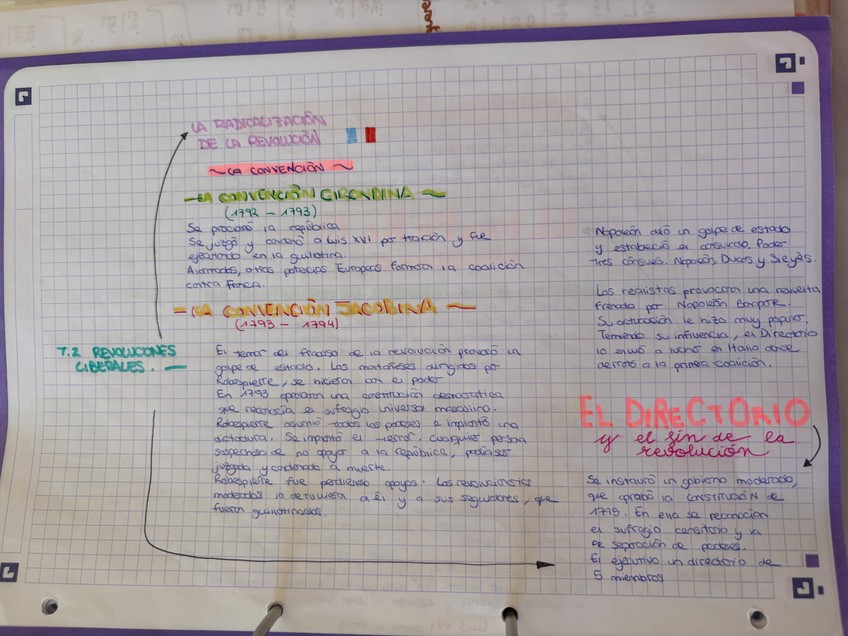 LA RADICALIZACIÓN
DE LA REVOLUCIÓN
~ LA CONVENCIÓN ~
LA CONVENCIÓN GIRONDINA
(1792 - 1793)
Se proclamó la república
Se juzgó y condenó a Luis XVI por traición y fue
ejecutado en la guillotina.
Alarmados, otras potencias Europeas forman la coalición
contra Francia.
= LA CONVENCIÓN JACOBINA -
(1793 - 1794)
T.2 REVOLUCIONES
LIBERALES. -
El temor del fracaso de la revolución provocó un
golpe de estado. Los montañeses dirigidos por
Robespierre, se hicieron con el poder
En 1793 aprobaron una constitución democrática
que reconocía el sufragio universal masculino.
Robespierre asumió todos los poderes e implantó una
dictadura. Se implantó el terror. Cualquier persona
sospechosa de no apoyar a la república, podía ser
juzgada y condenada a muerte.
Robespierre fue perdiendo apoyos. Los revolucionarios
moderados le detuvieron a él y a sus seguidores, que
fueron guillotinados.
Napoleón dió un golpe de estado
y estableció el consulado. Poder
Tres cónsules. Napoleón, Ducos y Sieyès.
Los realistas provocaron una revuelta
frenada por Napoleón
Su actuación le hizo muy popular.
Temiendo su influencia, el Directorio
lo envió a luchar en Italia donde
derrotó a la primera coalición.
EL DIRECTORIO
y el fin de la
revolución
Se instauró un gobierno moderado,
que aprobó la CONSTITUCIÓN de
1795. En ella se reconocían
el sufragio censitario y la
separación de poderes.
El ejecutivo un directorio de
5 miembros